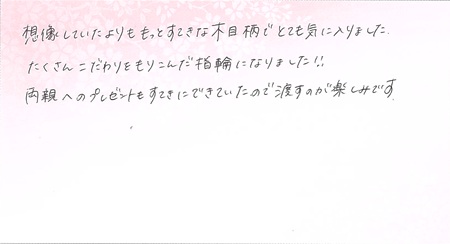 想像していたよりももっとすてきな木目柄でとても気に入りました.
たくさんこだわりをもりこんだ指輪になりました!!
両親へのプレゼントもすてきにできていたので渡すのが楽しみです.